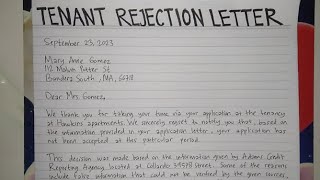 TENANT REJECTION LETTER
September 23, 2023
Mary Anne Gomez
112 Malvin Potter St
Banders South, MA, 62718
Dear Mrs. Gomez,
We thank you for taking your time via your application at the tenancy
at Hawkins apartments. We sincerely regret to notify you that, based on
the information provided in your application letter, your application has
not been accepted at this particular period.
This decision was made based on the information given by Adams Credit
Reporting Agency located at Collardo 54578 Street. Some of the reasons
include false information that could not be verified by the given sources,